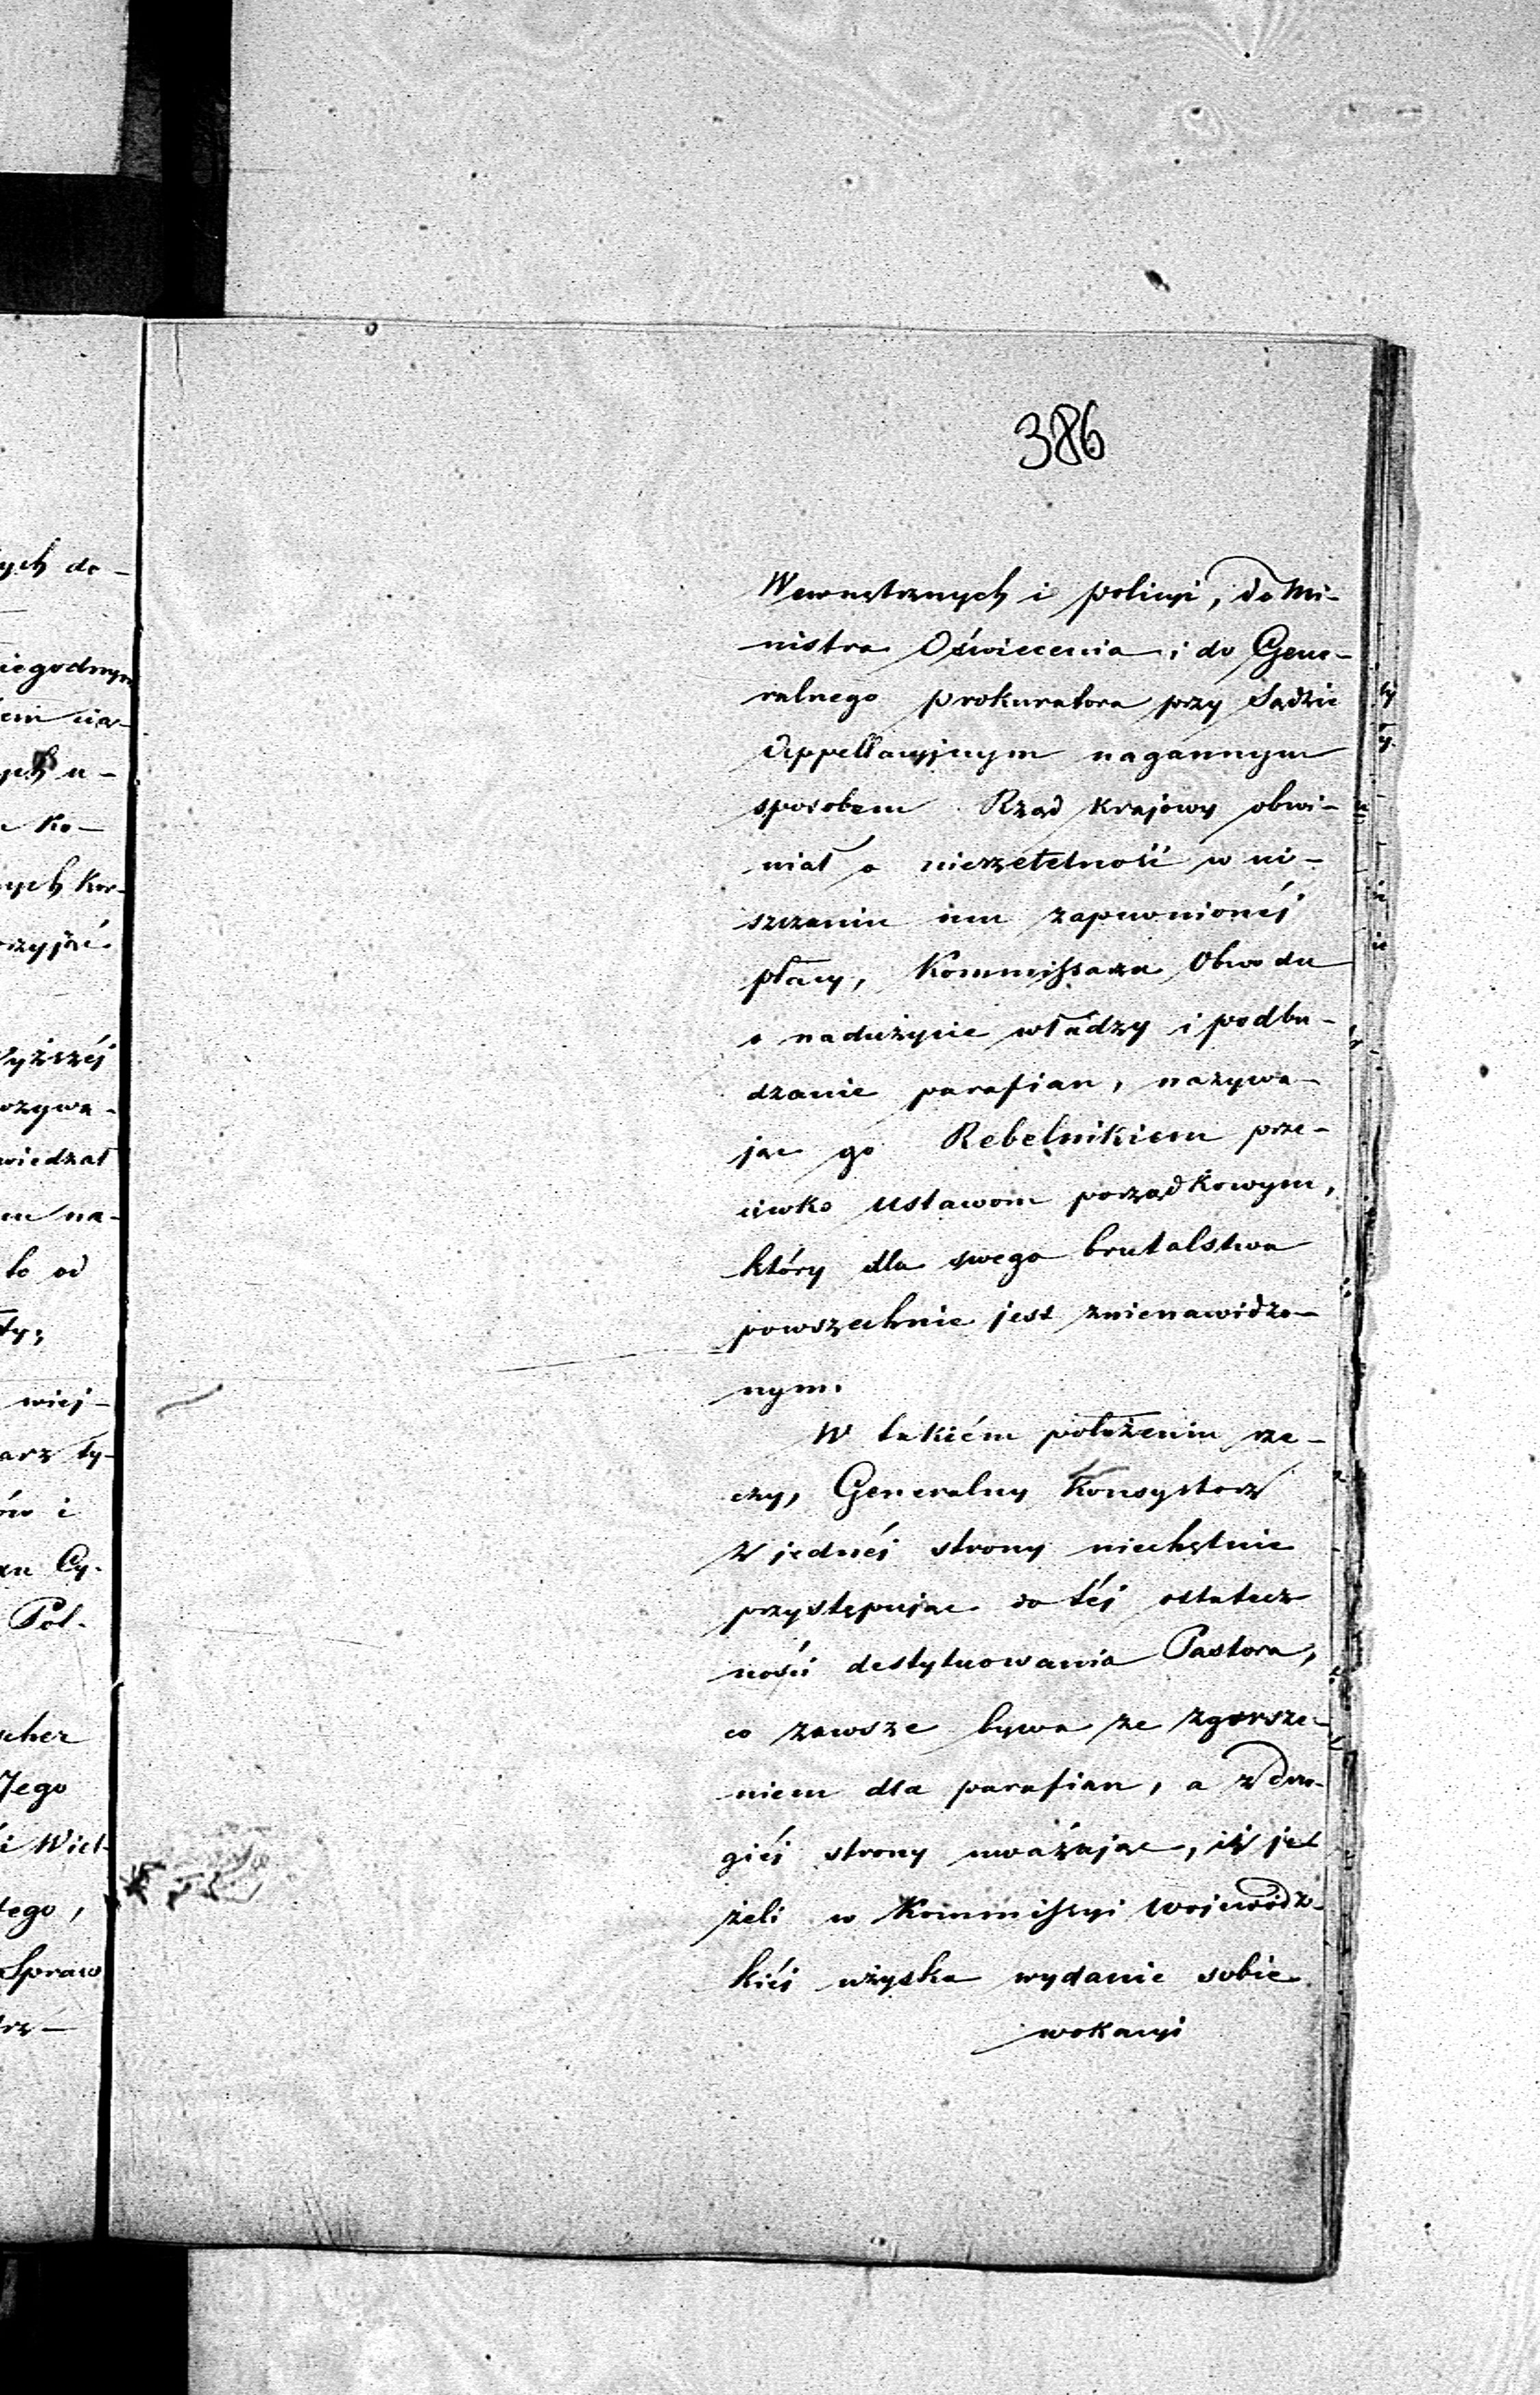 386
Wewnętrznych i policyi, do Mi-
nistra Oświecenia i do Gene-
ralnego prokuratora przy Sądzie
Appellacyjnym nagannym
sposobem Rząd krajowy obwi-
niał o nierzetelność w ui-
szczaniu mu zapewnionéj
płacy, Kommissarza Obwodu
o nadużycie władzy i podbu-
dzanie parafian, nazywa-
jąc go Rebelnikiem prze-
ciwko Ustawom porządkowym,
który dla swego brutalstwa
powszechnie jest znienawidzo-
nym.
W takiém położeniu rze-
czy, Generalny Konsystorz
z jednéj strony niechętnie
przystępując do téj ostatecz
ności destytuowania Pastora,
co zawsze bywa ze zgorsze-
niem dla parafian, a z dru-
giéj strony uważając, iż jeż
żeli w Kommissyi Wojewódz-
kiéj uzyska wydanie sobie
wokacyi
ych do-
niegodnym
ych u-
ko-
nych kor-
Wyższéj
wiedział
na-
to od
wiej-
arz ty-
ów i
Cy-
Pol-
scher
Jego
i Wiel-
tego,
Spraw